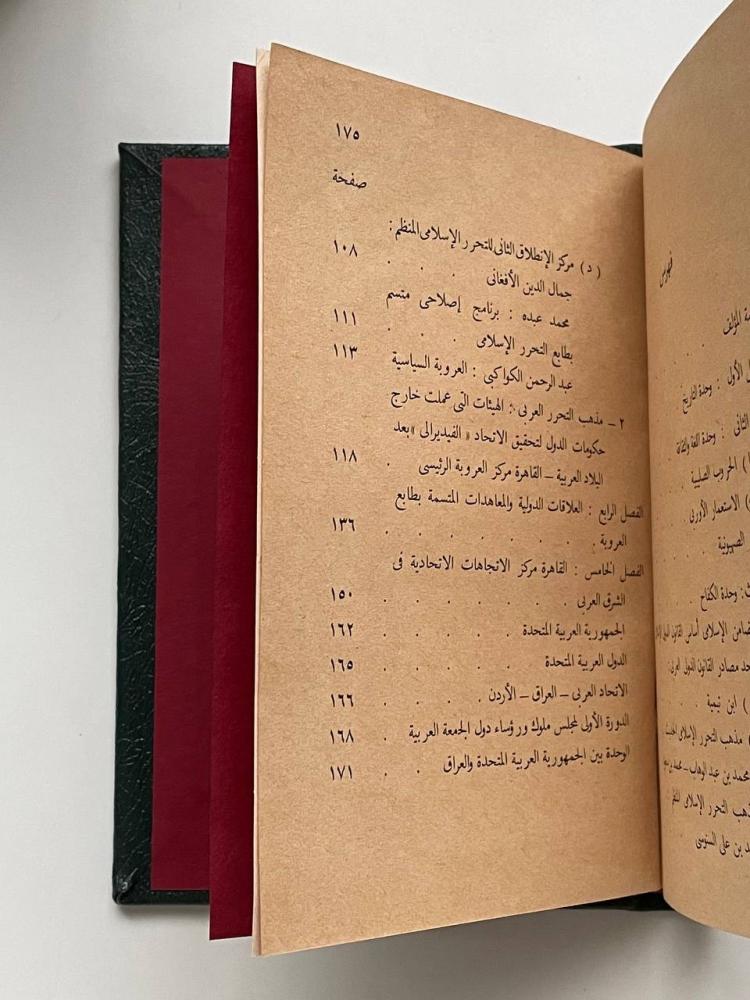 فهرس
المؤلف
الأول : وحدة التاريخ
الثانى : وحدة اللغة والثقافة
) الحروب الصليبية
) الاستعمار الأوربى
الصهيونية
وحدة الكفاح
الإسلامى أساس القانون
مصادر القانون الدولى العربى :
) ابن تيمية
) مذهب التحرر الإسلامى
محمد بن عبد الوهاب – محمد بن
التحرر الإسلامى
بن على السنوسى
١٧٥
صفحة
( د ) مركز الإنطلاق الثانى للتحرر الإسلامى المنظم :
جمال الدين الأفغانى . . . ١٠٨
محمد عبده : برنامج إصلاحى متسم
بطابع التحرر الإسلامى . . . ١١١
عبد الرحمن الكواكبى : العروبة السياسية ١١٣
٢ – مذهب التحرر العربى : الهيئات التى عملت خارج
حكومات الدول لتحقيق الاتحاد « الفيديرالى » بعد
البلاد العربية – القاهرة مركز العروبة الرئيسى . ١١٨
الفصل الرابع : العلاقات الدولية والمعاهدات المتسمة بطابع
العروبة . . . . . . . ١٣٦
الفصل الخامس : القاهرة مركز الاتجاهات الاتحادية فى
الشرق العربى . . . . . . ١٥٠
الجمهورية العربية المتحدة . . . . ١٦٢
الدول العربية المتحدة . . . . ١٦٥
الاتحاد العربى – العراق – الأردن . . . ١٦٦
الدورة الأولى لمجلس ملوك ورؤساء دول الجمعة العربية . ١٦٨
الوحدة بين الجمهورية العربية المتحدة والعراق . . ١٧١